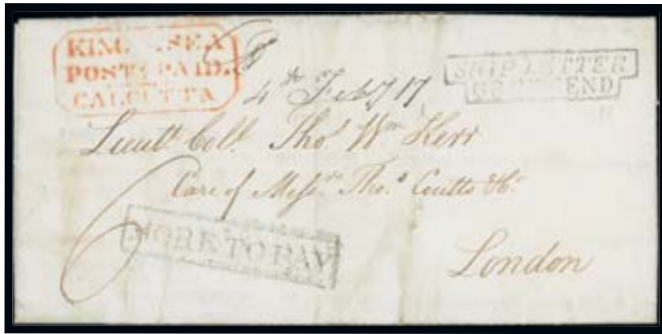 SEA
POST PAID.
CALCUTTA
SHIP LETTER
GRAVESEND
4th Feby 17
Lieutt. Coll. Thos Wm Kerr
Care of Messrs Thos Coutts & Co
6
MORE TO PAY
London